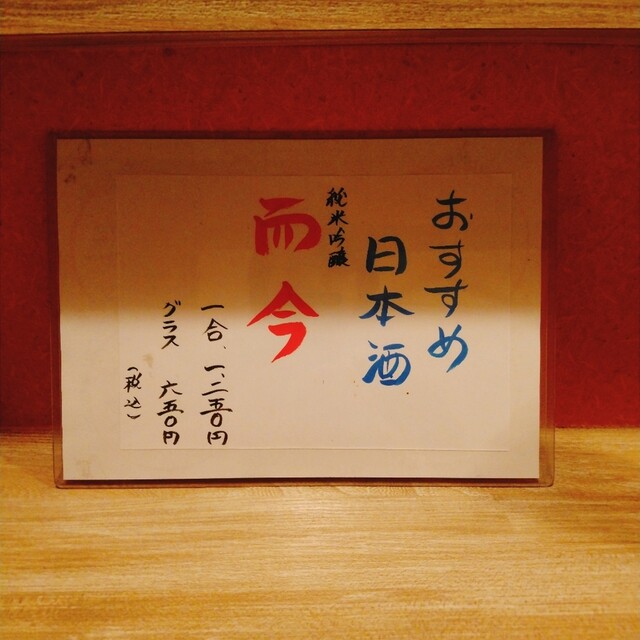 おすすめ
日本酒
純米吟醸
而今
一合、一、二五〇円
グラス 六五〇円
(税込)